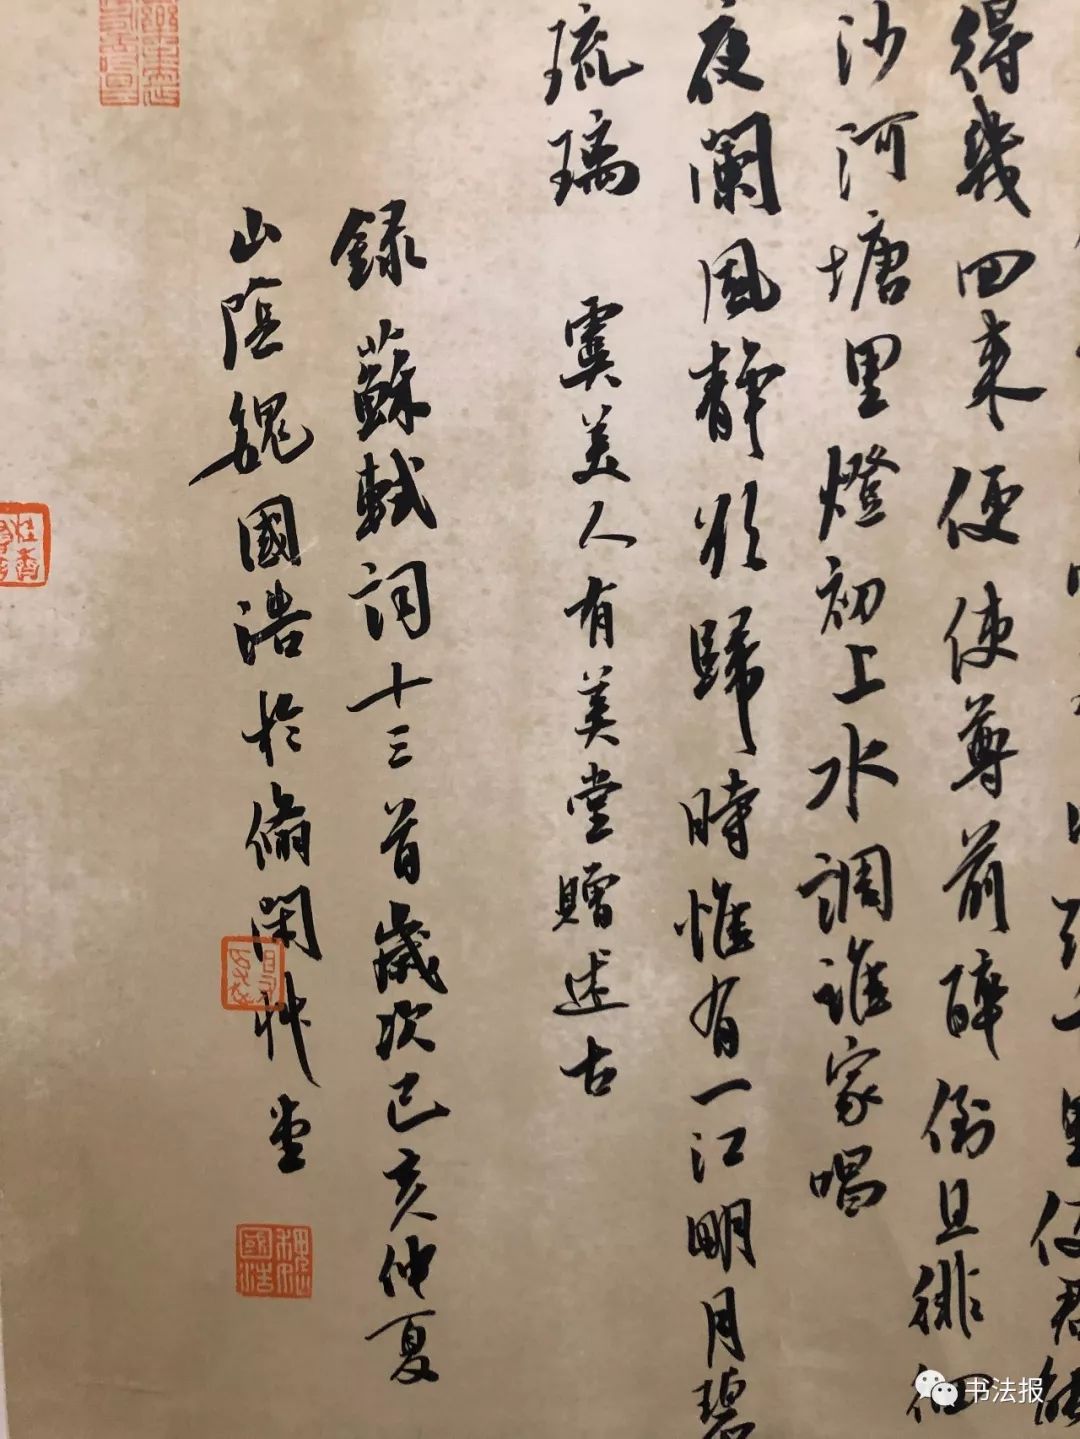 使君能
得幾回来便使尊前醉倒且徘徊
沙河塘里燈初上水調誰家唱
夜闌風静欲歸時惟有一江明月碧
琉璃 虞美人有美堂贈述古
録蘇軾詞十三首歲次己亥仲夏
山陰魏國浩於偷閑艸堂
魏國浩
书法报